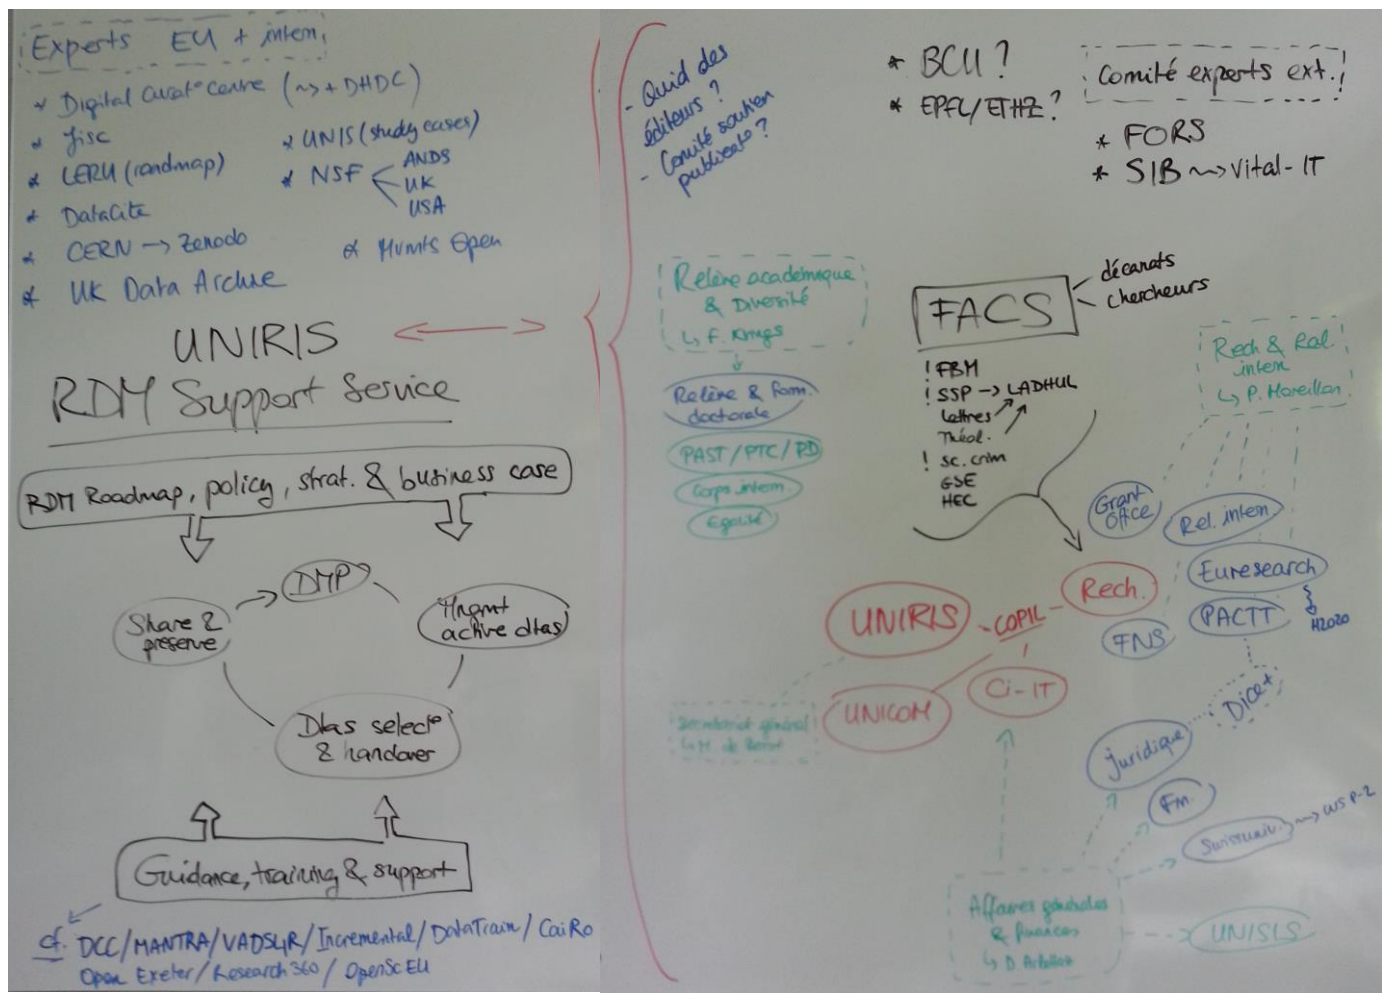 Experts EU + intern.
* Digital curat° centre (~> + DHDC)
* Jisc
* UNIS (study cases)
* LERU (roadmap)
* NSF
ANDS
UK
USA
* DataCite
* CERN → Zenodo
* Mvmts Open
* UK Data Archive
UNIRIS
RDM Support Service
RDM Roadmap, policy, strat. & business case
DMP
Share &
preserve
Mngmt
active dtas
Dtas select°
& handover
Guidance, training & support
cf. DCC/MANTRA/VADS4R/Incremental/DataTrain/CaiRo
Open Exeter/Research360/OpenSc EU
- Quid des
éditeurs ?
- Comité soutien
publicat° ?
* BCU ?
* EPFL/ETHZ ?
Comité experts ext.
* FORS
* SIB ~> Vital-IT
Relève académique
& Diversité
↳ F. Krings
Relève & form.
doctorale
PAST/PTC/PD
Corps interm.
Egalité
FACS
décanats
chercheurs
! FBM
! SSP → LADHUL
Lettres
Théol.
! Sc. crim
GSE
HEC
Rech & Rel.
intern
↳ P. Moreillon
Grant
Office
Rel. intern
Euresearch
H2020
PACTT
FNS
Rech.
UNIRIS
COPIL
UNICOM
Ci-IT
Secrétariat général
Dice+
Juridique
Fin.
Swissuniv. ~> CUS P-2
Affaires générales
& finances
UNISIS